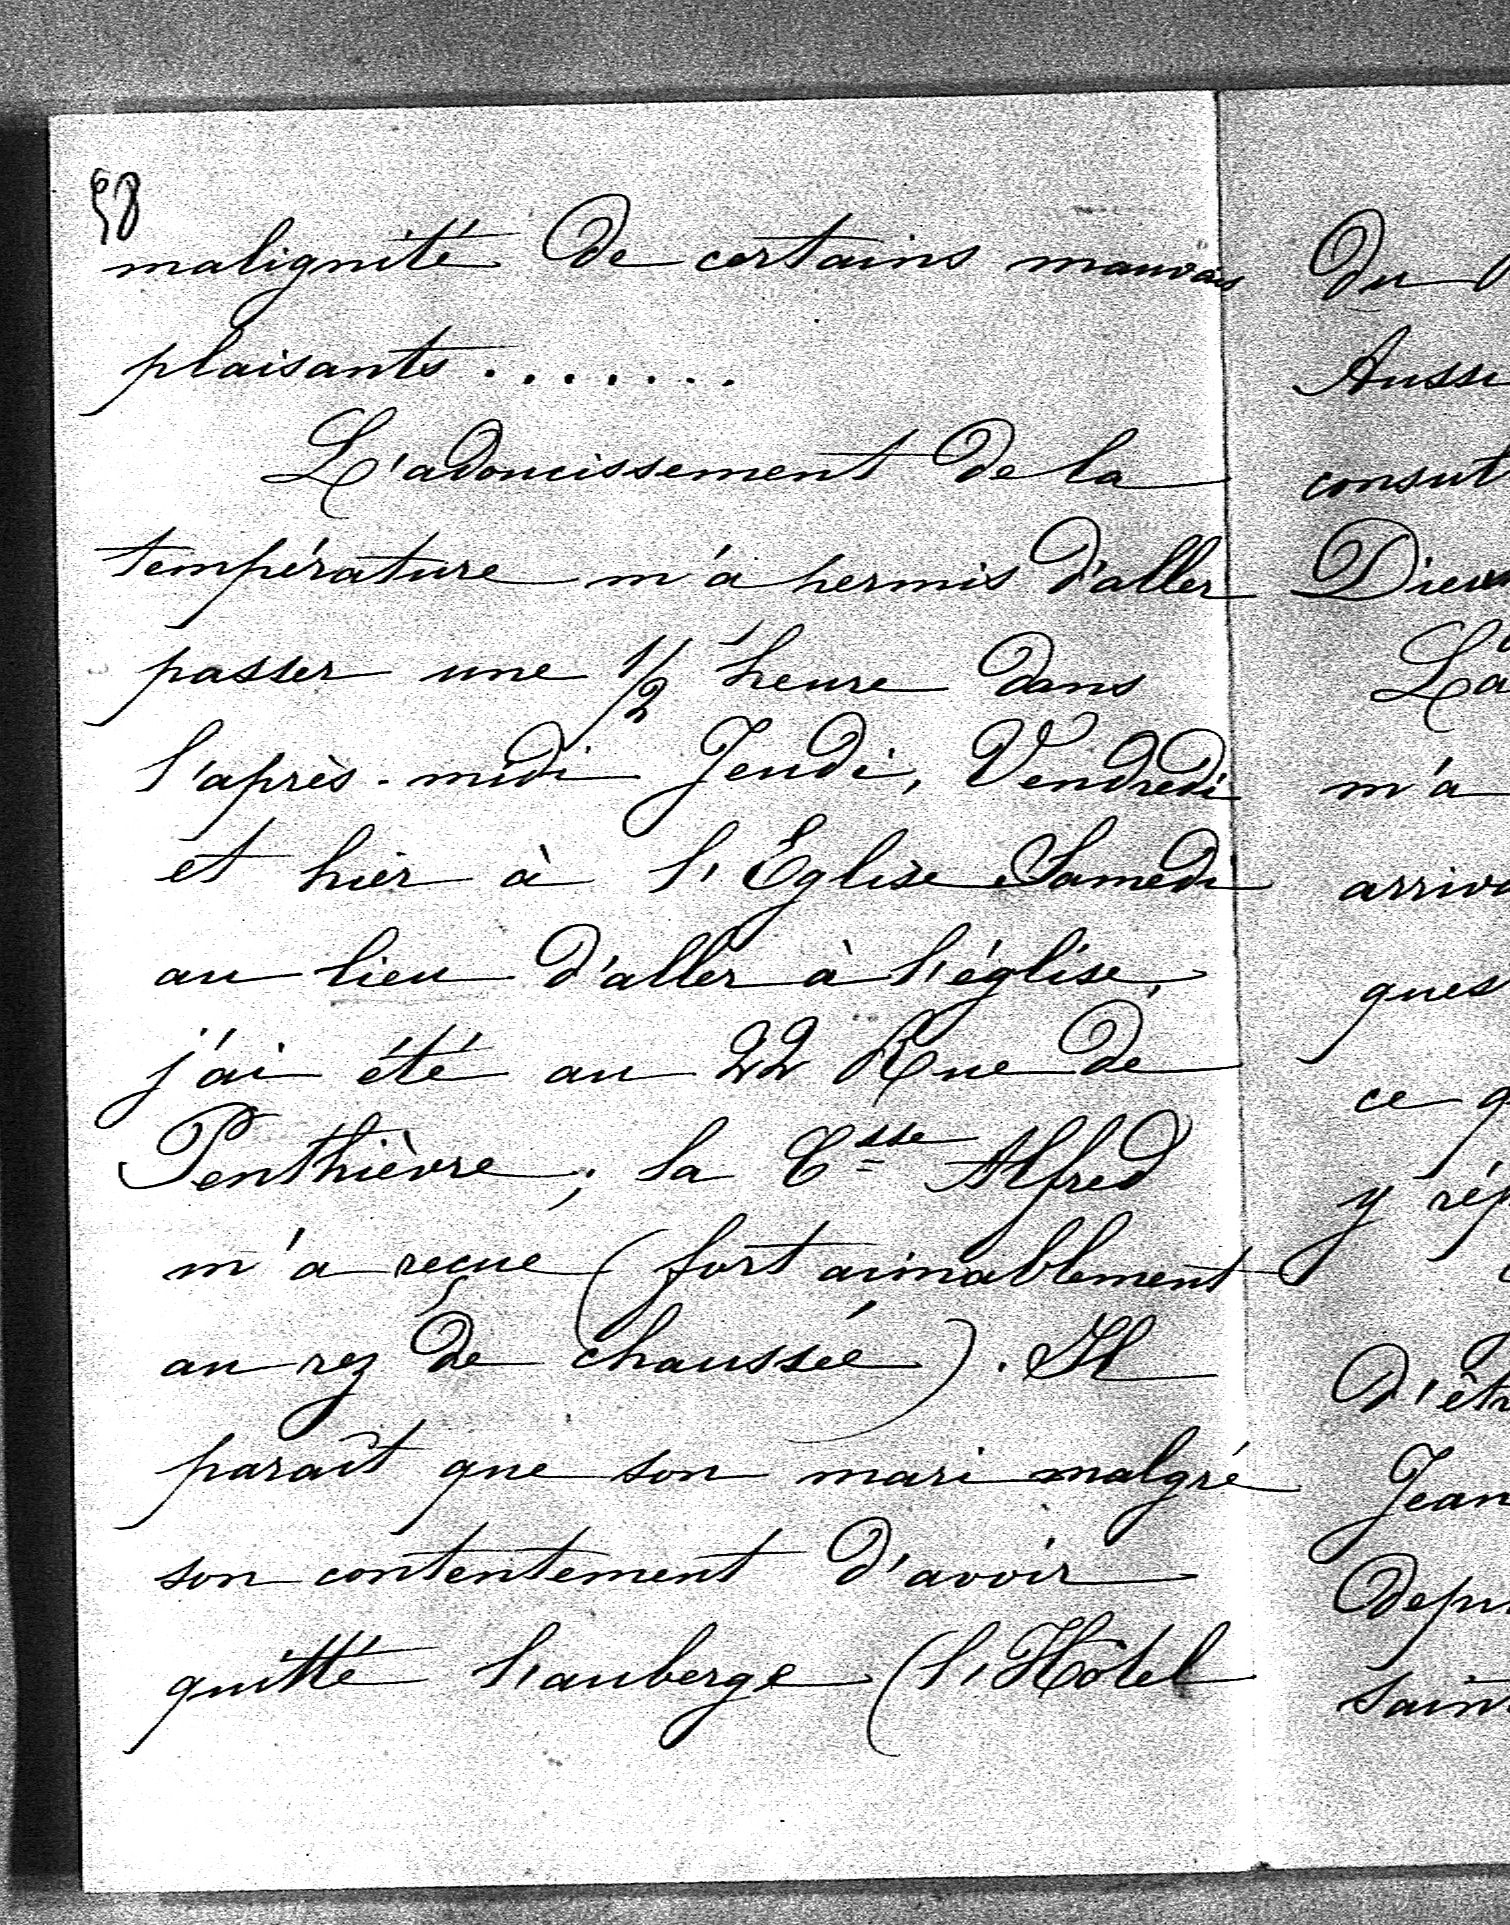 58
malignité de certains mauvais
plaisants . . . . . . .
L'adoucissement de la
température m'a permis d'aller
passer une 1/2 heure dans
l'après-midi Jeudi, Vendredi
et hier à l'Eglise. Samedi
au lieu d'aller à l'église,
j'ai été au 22 Rue de
Penthièvre ; la Csse Alfred
m'a reçue (fort aimablement
au rez de chaussée). Il
paraît que son mari malgré
son contentement d'avoir
quitté l'auberge (l'Hôtel
du
Aussi
consul
Dieu
La
m'a
arriv
ques
ce q
y rép
d'êtr
Jean
depu
sain